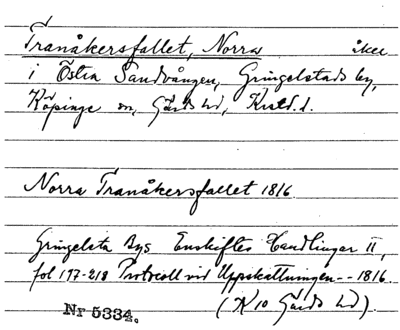 Tranåkersfallet, Norra åker
i Östra Sandvången, Gringelstads by,
Köpinge sn, Gärds hd, Krstd. l.
Norra Tranåkersfallet 1816.
Gringelsta Bys Enskiftes Handlingar II,
fol 197-218 Protocoll vid Uppskattningen -- 1816.
(N 10 Gärds hd).
Nr 5334.